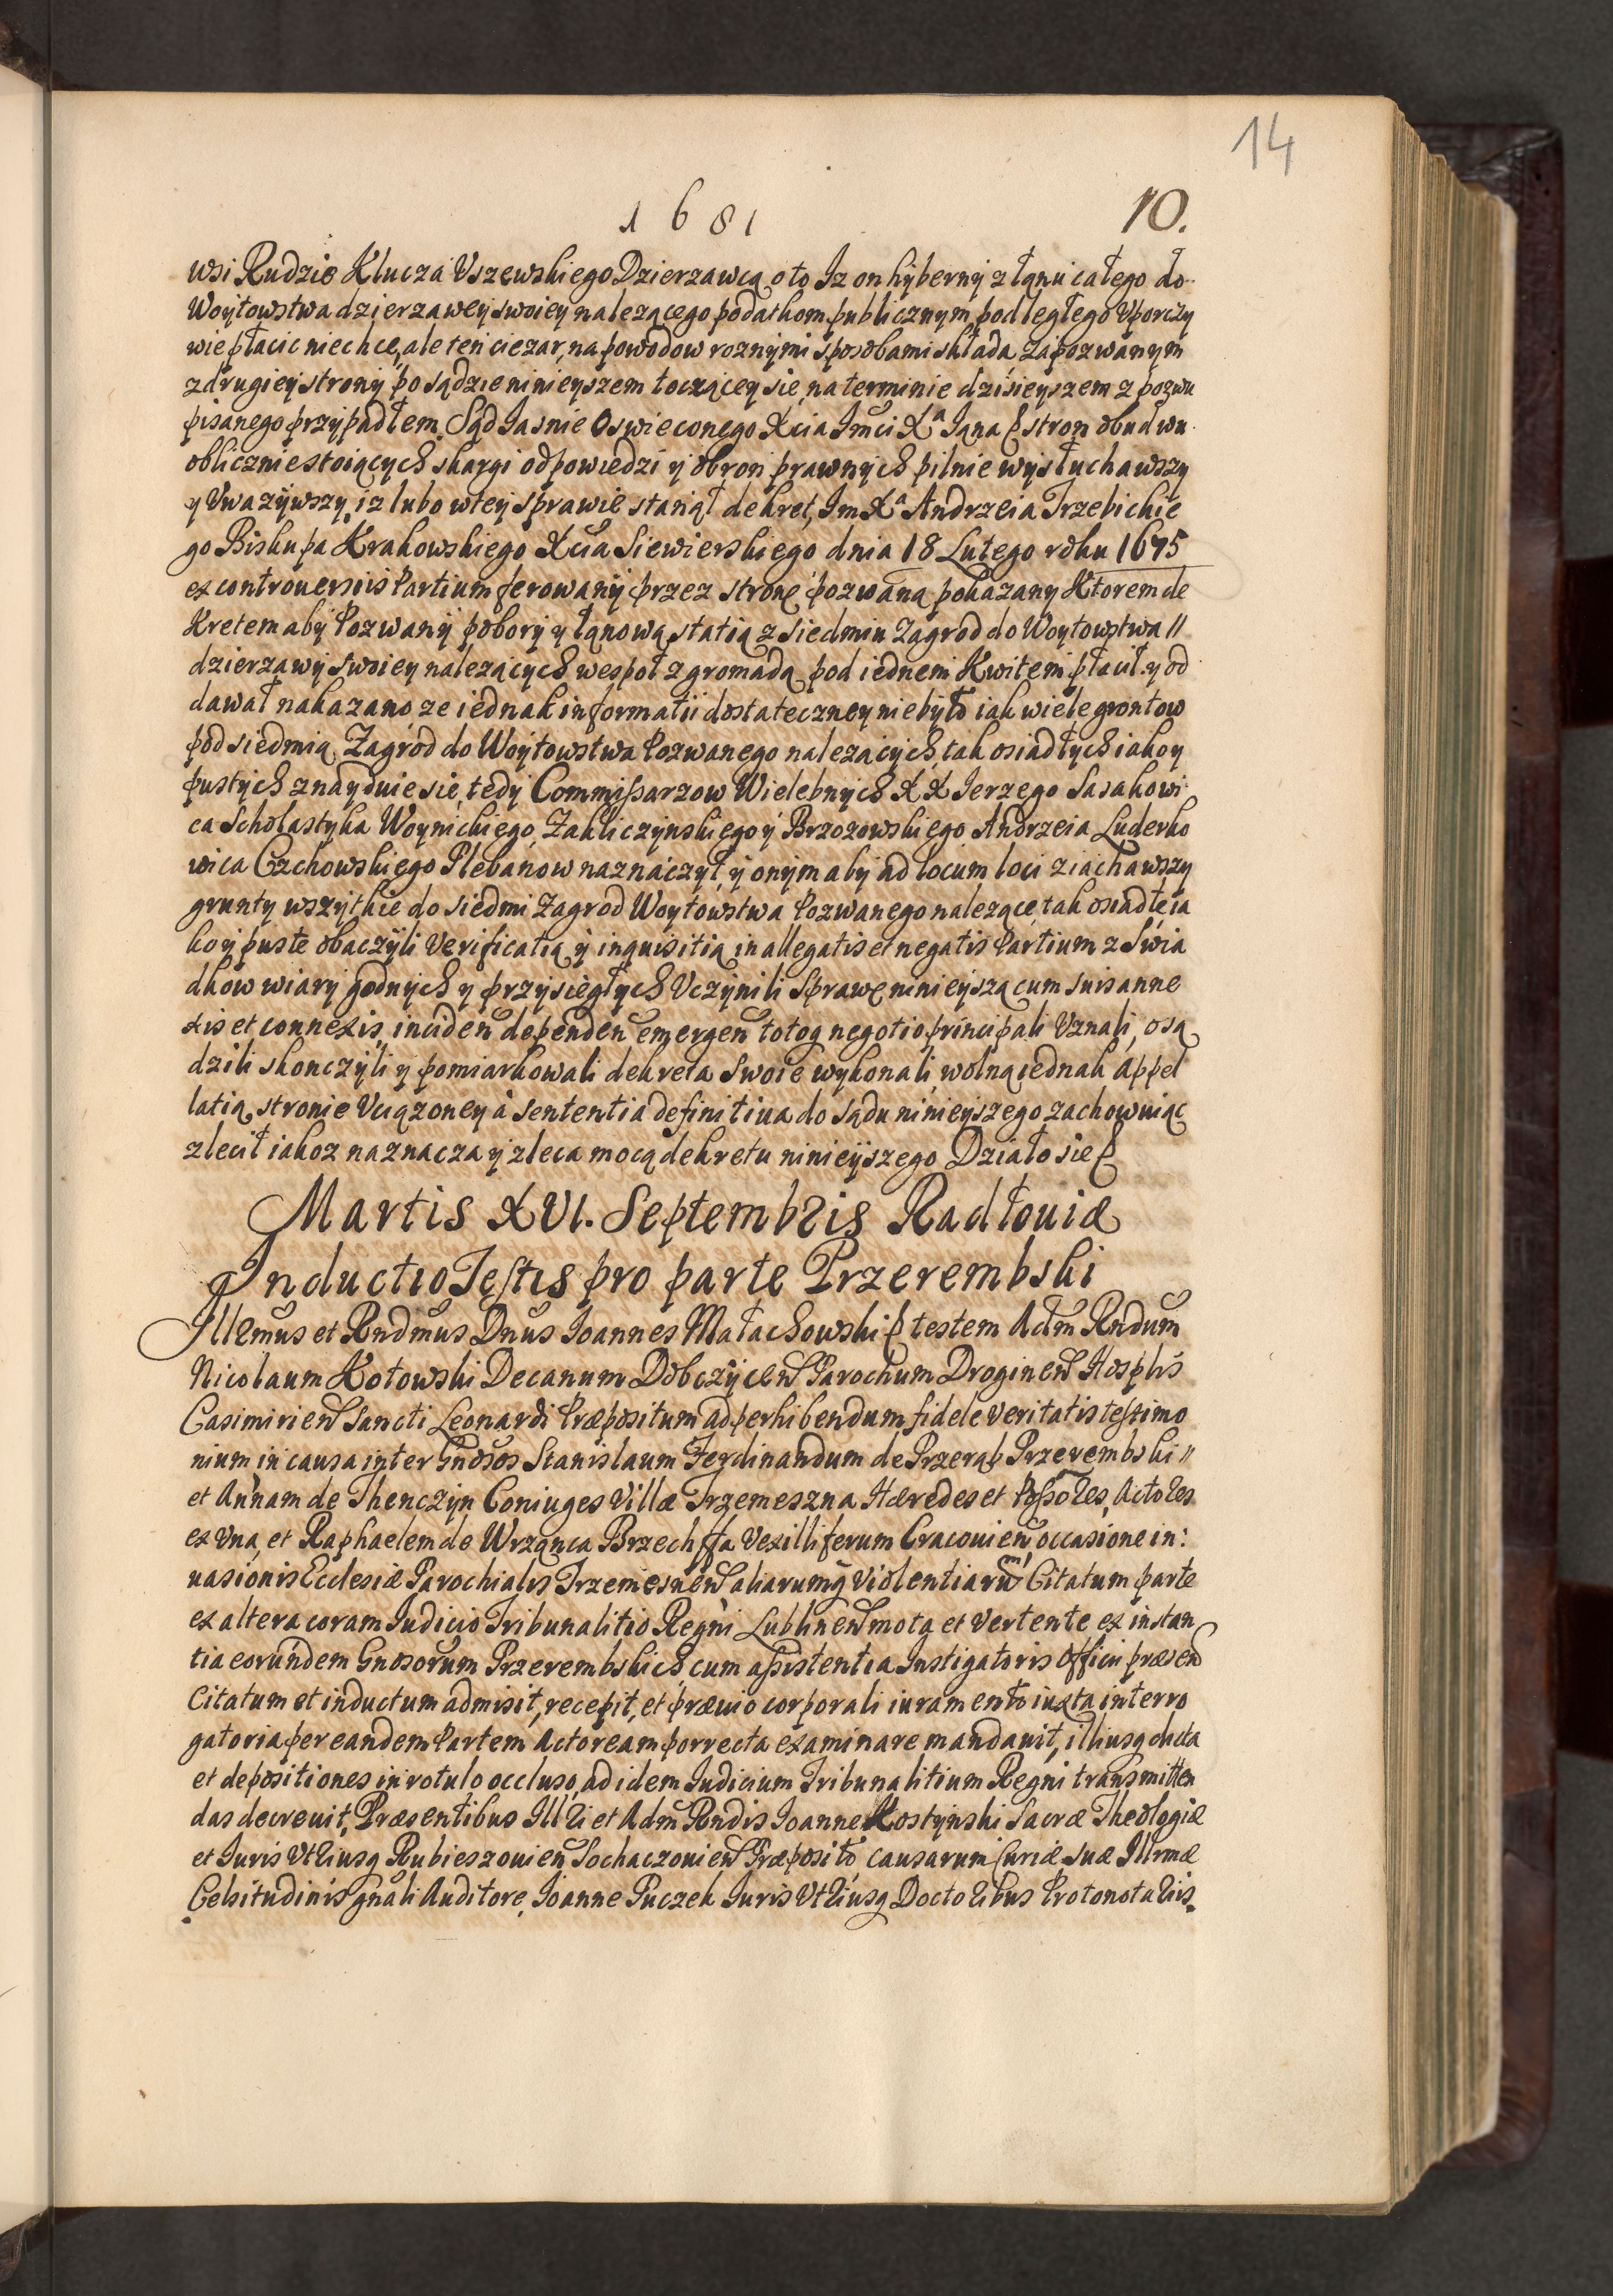 14
1681 10.
wsi Rudzie Klucza Uszewskiego Dzierzawcą o to Iz on hyberny z łanu całego do
Woytowstwa dzierzawey swoiey nalezącego podatkom publicznym podległego Uporczy
wie płacic niechce, ale ten ciezar, na powodow roznymi sposobami składa, zapozwanym
z drugiey strony po sądzie ninieyszem toczącey sie, na terminie dzisieyszem z pozwu
pisanego przypadłem. Sąd Iasnie Oswieconego Xcia Imci Xa Iana stron obudwu
oblicznie stoiących skargi odpowiedzi y obron prawnych pilnie wysłuchawszy
y Uwazywszy, iz lubo w tey sprawie stanął dekret, Im Xa Andrzeia Trzebickie
go Biskupa Krakowskiego Xcia Siewierskiego dnia 18 Lutego roku 1675
ex controuersiis Partium ferowany przez strone pozwaną pokazany Ktorem de
Kretem aby Pozwany pobory y łanową statią z siedmiu Zagrod do Woytowstwa //
dzierzawy swoiey nalezących wespoł z gromadą pod iednem Kwitem płacił y od
dawał nakazano, ze iednak informatii dostateczney niebyło iak wiele grontow
pod siedmią Zagrod do Woytowstwa Pozwanego nalezących, tak osiadłych iako y
pustych znayduie sie, tedy Commissarzow Wielebnych X X Ierzego Sasakowi
ca Scholastyka Woynickiego, Zakliczynskiego y Brzozowskiego Andrzeia Luderko
wica Czchowskiego Plebanow naznaczył, y onym aby ad locum loci ziachawszy
grunty wszytkie do siedmi Zagrod Woytowstwa Pozwanego nalezące, tak osiadłe ia
ko y puste obaczyli Verificatią y inquisitią in allegatis et negatis Partium z Swia
dkow wiary godnych y przysiegłych Uczynili Sprawę ninieyszą cum suis anne
xis et connexis, inciden dependen emergen totoq negotio principali Uznali, osą
dzili skonczyli y pomiarkowali dekreta Swoie wykonali, wolną iednak appel
latią stronie Uciązoney à sententia definitiua do sądu ninieyszego zachowuiąc
zlecił iakoz naznacza y zleca mocą dekretu ninieyszego, Działo sie
Martis XVI. Septembris Radłouiæ
Inductio Testis pro parte Przerembski
Illrmus et Rndmus Dnus Ioannes Małachowski testem Adm Rndum
Nicolaum Kotowski Decanum Dobczycen Parochum Droginen Hosplis
Casimirien Sancti Leonardi Præpositum ad perhibendum fidele veritatis testimo
nium in causa inter Gnosos Stanislaum Ferdinandum de Przerąb Przerembski //
et Annam de Thenczyn Coniuges Villæ Trzemeszna Hæredes et Possores, Actores
ex Una, et Raphaelem de Wrzanca Brzechffa Vexilliferum Cracouien occasione in:
uasionis Ecclesiæ Parochialis Trzemesnen aliarumq violentiarum Citatum parte
ex altera coram Iudicio Tribunalitio Regni Lublinen mota et vertente ex instan
tia eorundem Gnosorum Przerembskich cum assistentia Instigatoris Officii præsen
Citatum et inductum admisit, recepit, et præuio corporali iuramento iuxta interro
gatoria per eandem Partem Actoream porrecta examinare mandauit, illiusq dicta
et depositiones in rotulo occluso, ad idem Iudicium Tribunalitium Regni transmitten
das decreuit, Præsentibus Illri et Adm Rndis Ioanne Kostynski Sacræ Theologiæ
et Iuris Utriusq Rubieszouien Sochaczouien Præposito, causarum Curiæ Suæ Illrmæ
Celsitudinis gnali Auditore, Ioanne Puczek Iuris Utriusq Doctoribus Protonotariis.